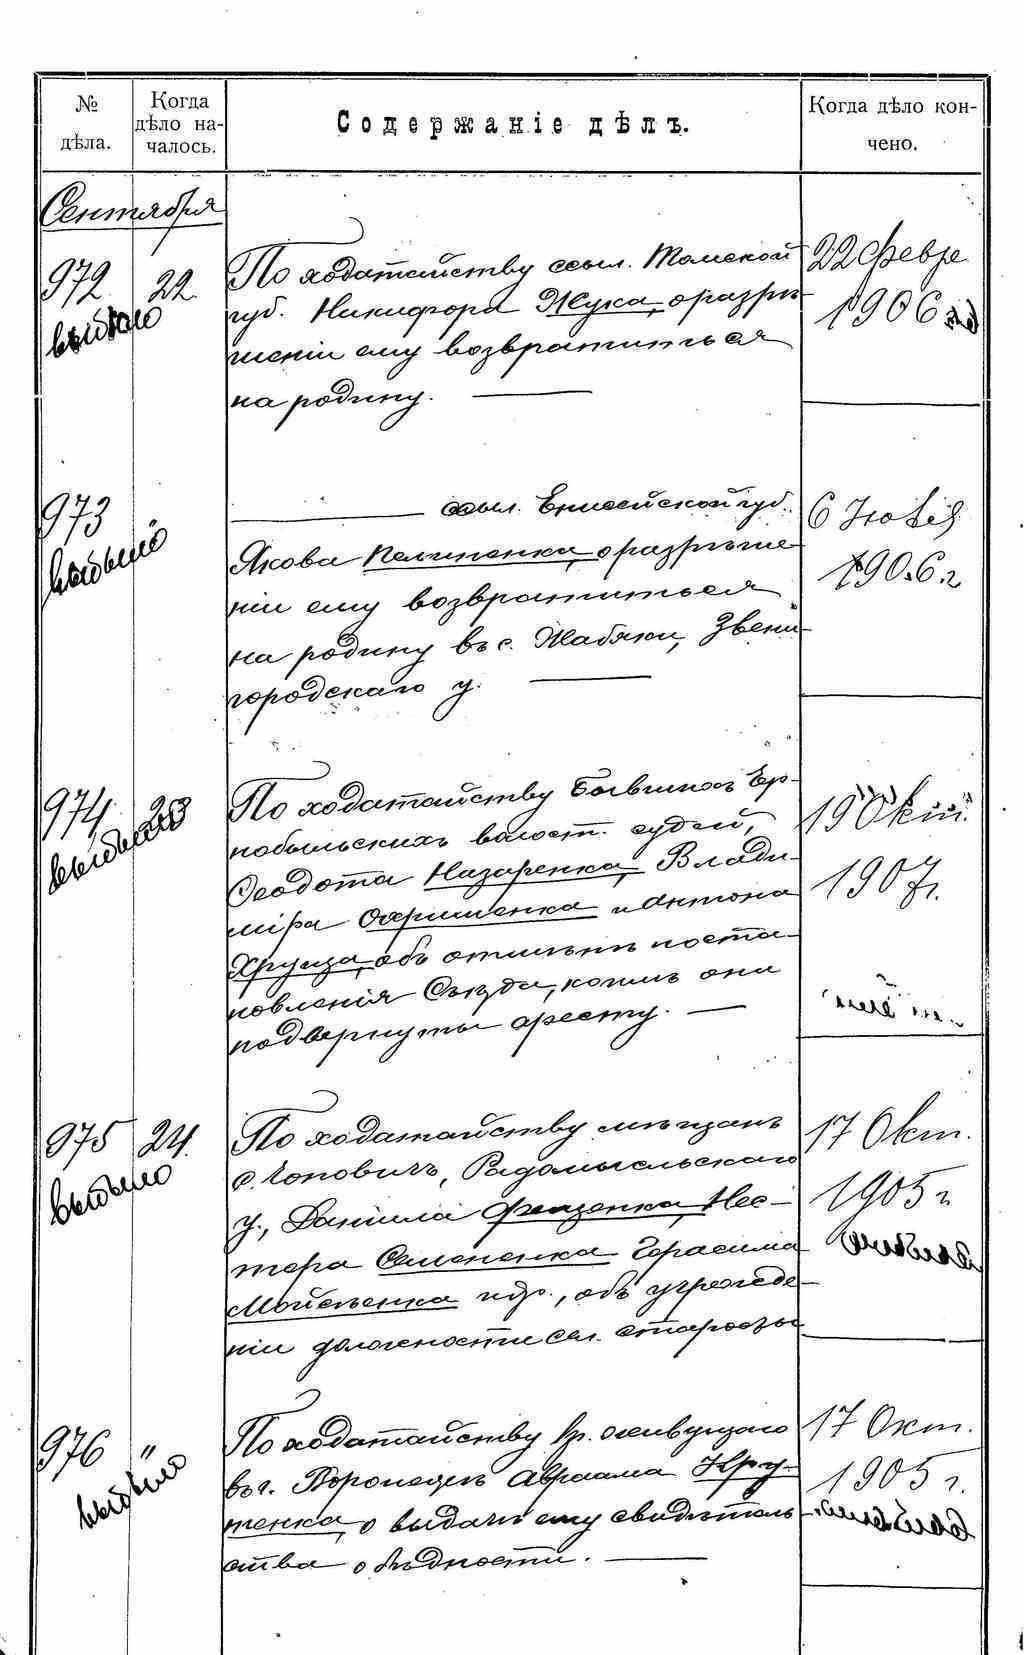 № дѣла.
Когда дѣло началось.
Содержаніе дѣлъ.
Когда дѣло кончено.
Сентября
972 22
выбыло
По ходатайству ссыл. Томской
губ. Никифора Жука, о разрѣ-
шеніи ему возвратиться
на родину.
22 февр
1906
973 "
выбыло
ссыл. Енисейской губ.
Якова, о разрѣше
ніи ему возвратиться
на родину въ с. Жабяки, Звени-
городскаго у.
6
1906 г
974 23
выбыло
По ходатайству бывшихъ
волост. судей,
Ѳеодота Назаренка, Влади-
міра и Антона
Хруща, объ отмѣнѣ поста-
новленія Съѣзда, коимъ они
подвергнуты аресту.
19
1907 г.
975 24.
выбыло
По ходатайству мѣщанъ
с. Чоповичъ, Радомысльскаго
у., Даніила Нес-
тера Семененка Герасима
Мойсѣенка и др., объ учрежде-
ніи должности сел. старосты
17 Окт.
1905 г
976 "
выбыло
По ходатайству пр. живущаго
въ г. Воронежѣ Авраама Кру-
о выдачѣ ему свидѣтель
ства о бѣдности.
17 Окт.
1905 г.